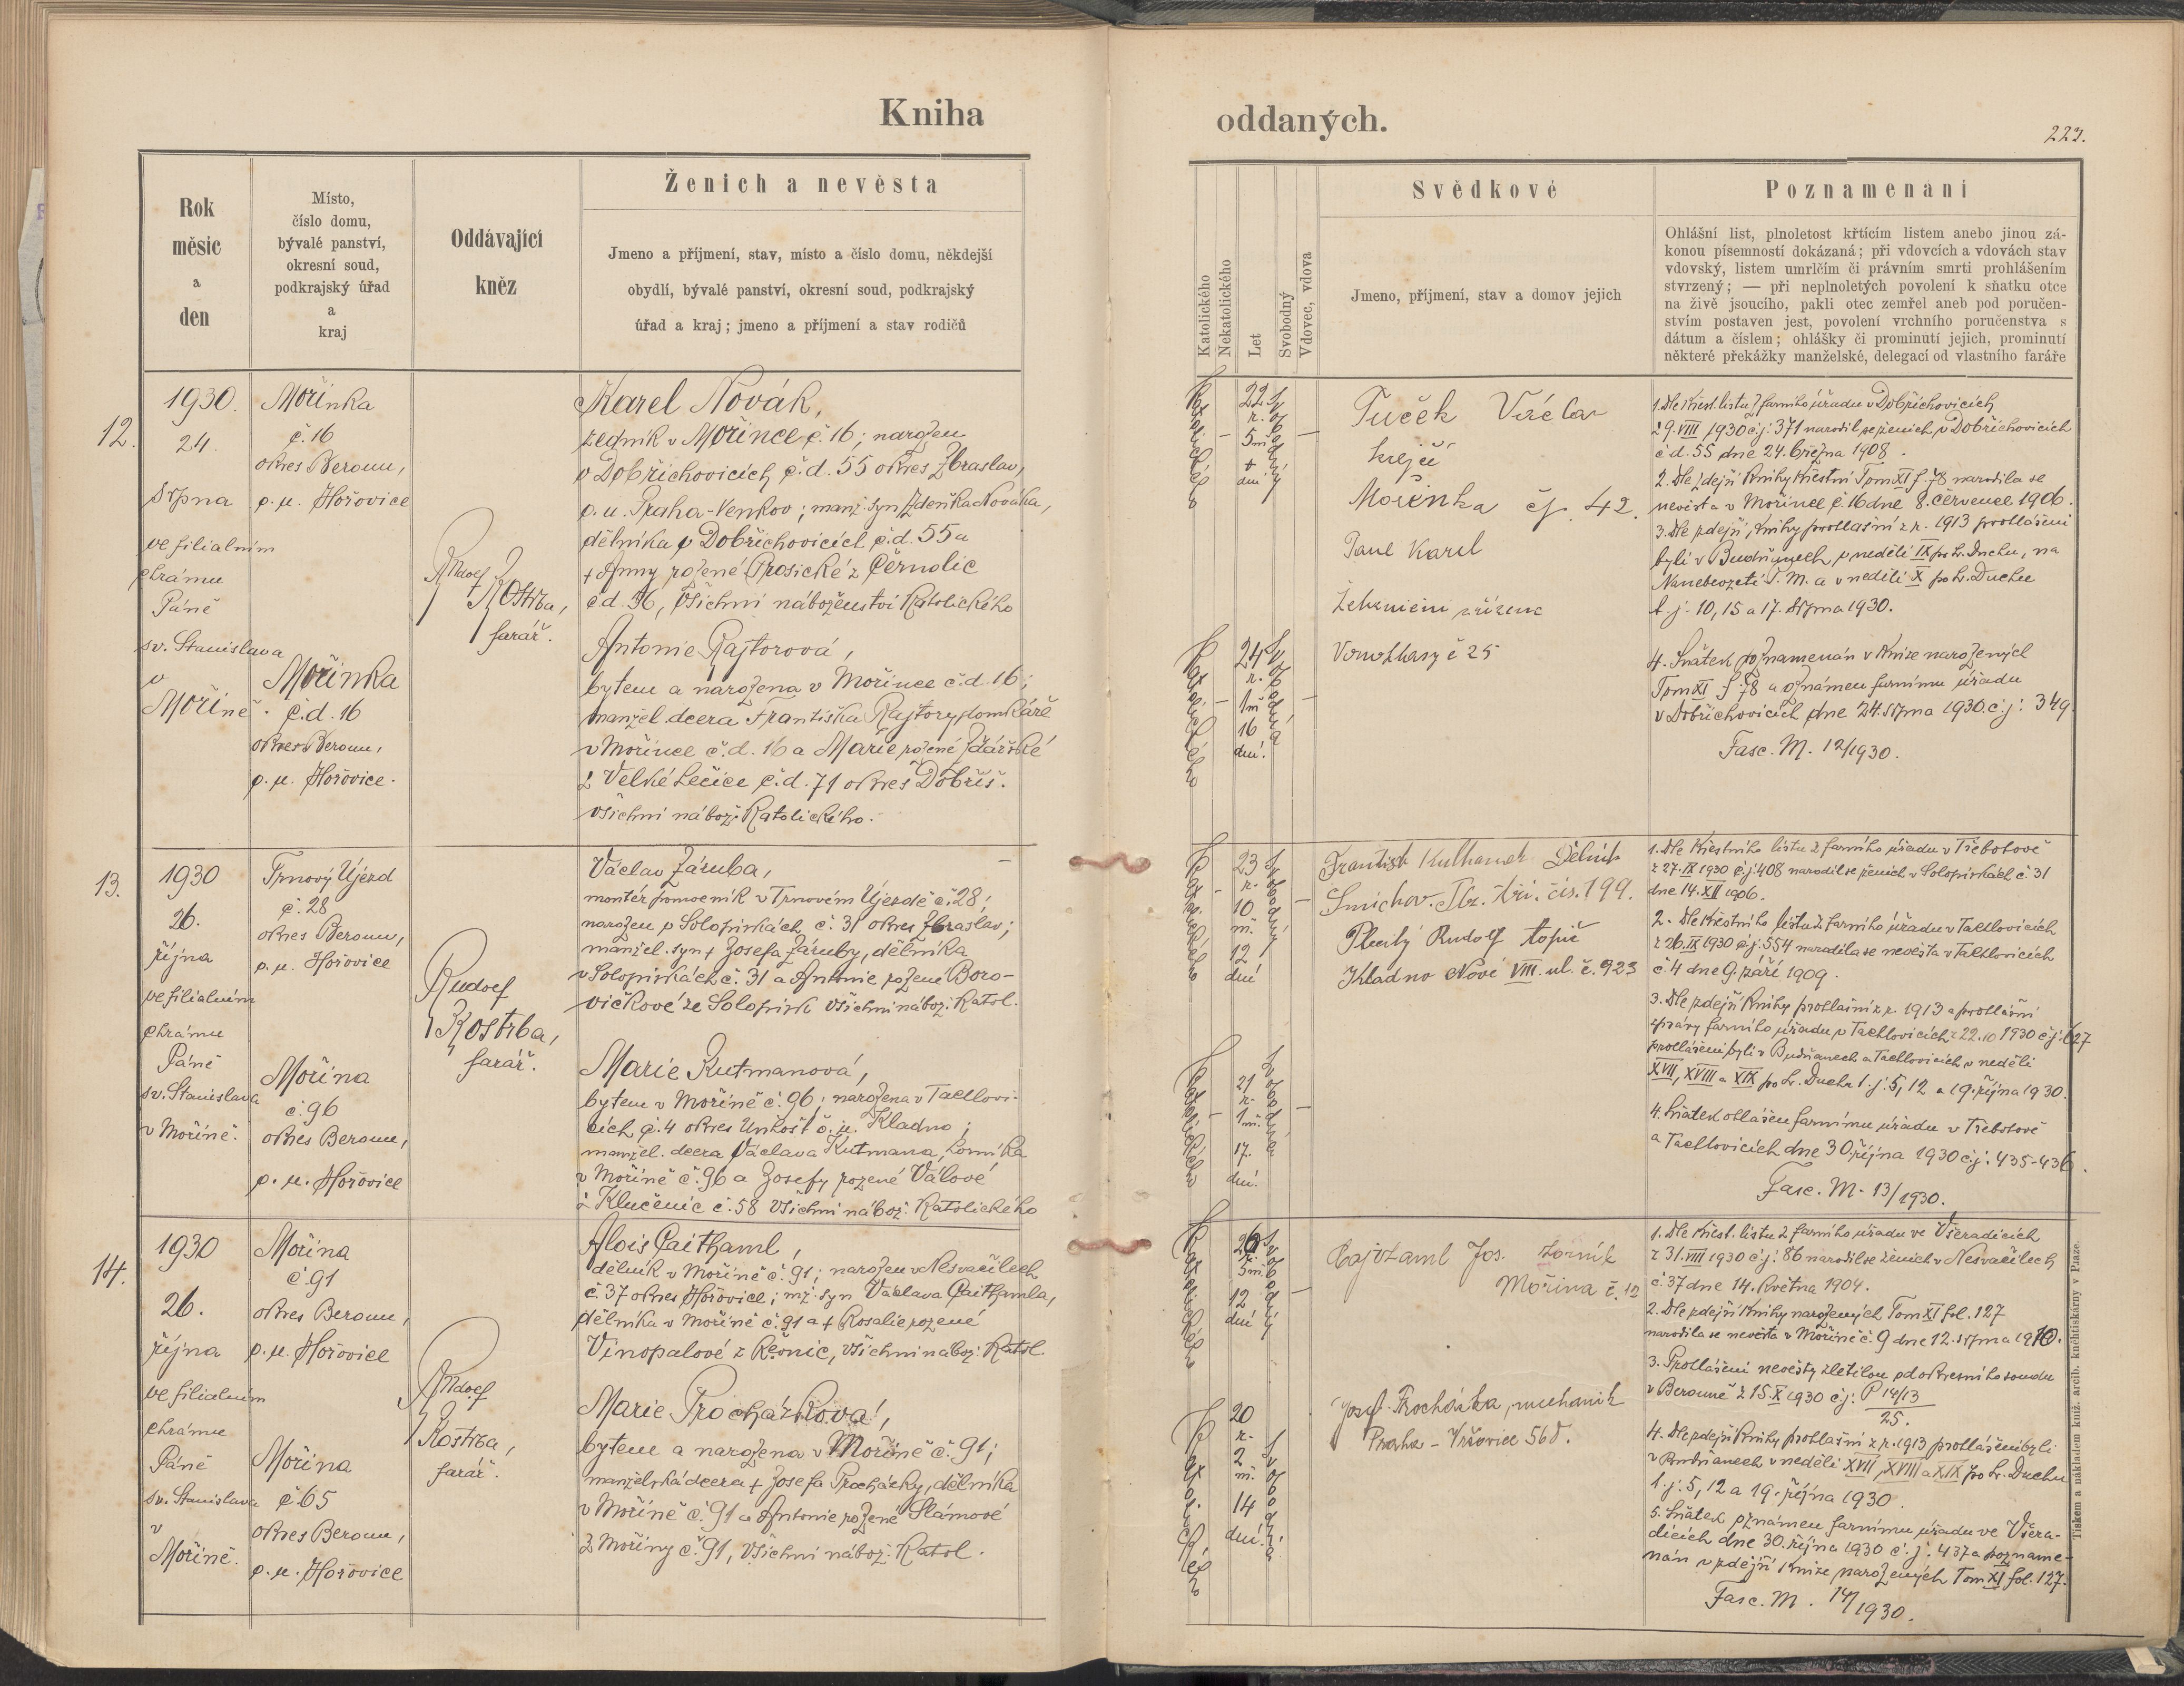 Kniha
oddaných.
223.
Rok
měsíc
a
den
Místo,
číslo domu,
bývalé panství,
okresní soud,
podkrajský úřad
a
kraj
Oddávající
kněz
Ženich a nevěsta
Jmeno a příjmení, stav, místo a číslo domu, někdejší
obydlí, bývalé panství, okresní soud, podkrajský
úřad a kraj; jmeno a příjmení a stav rodičů
Katolického
Nekatolického
Let
Svobodný
Vdovec, vdova
Svědkové
Jmeno, příjmení, stav a domov jejich
Poznamenání
Ohlášní list, plnoletost křtícím listem anebo jinou zá-
konou písemností dokázaná; při vdovcích a vdovách stav
vdovský, listem umrlčím či právním smrti prohlášením
stvrzený; — při neplnoletých povolení k sňatku otce
na živě jsoucího, pakli otec zemřel aneb pod poručen-
stvím postaven jest, povolení vrchního poručenstva s
dátum a číslem; ohlášky či prominutí jejich, prominutí
některé překážky manželské, delegací od vlastního faráře
12.
1930.
24.
srpna
ve filialním
chrámu
Páně
sv. Stanislava
v
Mořině.
Mořinka
č. 16
okres Beroun,
p. ú. Hořovice
Mořinka
č.d. 16
okres Beroun,
p. ú. Hořovice.
Rudolf
Kostrba,
farář.
Karel Novák,
zedník v Mořince č. 16; narozen
v Dobřichovicích č.d. 55 okres Zbraslav,
p. ú. Praha-Venkov; manž. syn Zdeňka Nováka,
dělníka v Dobřichovicích č.d. 55 a
+ Anny rozené Prosické z Černolic
č.d. 36, všichni náboženství Katolického
Antonie Rajtorová,
bytem a narozena v Mořince č.d. 16;
manžel. dcera Františka Rajtory, domkáře
v Mořince č.d. 16 a Marie rozené Žďárské
z Velké Lečice č.d. 71 okres Dobříš.
všichni nábož. Katolického.
Katolického
22
r.
5 m.
+
dní
Svobodný
Katolického
24
r.
1 m.
16
dní.
Svobodná
Tuček Václav
krejčí
Mořinka čp. 42.
Paul Karel
železniční zřízenec
č 25
1. Dle křest. listu z farního úřadu v Dobřichovicích
z 9. VIII 1930 č.j. 371 narodil se ženich v Dobřichovicích
č.d. 55 dne 24. března 1908.
2. Dle zdejší Knihy křestní Tom XI f. 78 narodila se
nevěsta v Mořince č. 16 dne 8. července 1906.
3. Dle zdejší Knihy prohlašní z r. 1913 prohlášeni
byli v Budňanech v neděli IX po sv. Duchu, na
Nanebevzetí P. M. a v neděli X po sv. Duchu
t. j. 10, 15 a 17. srpna 1930.
4. Sňatek poznamenán v Knize narozených
Tom XI f 78 a oznámen farnímu úřadu
v Dobřichovicích dne 24. srpna 1930. č.j. 349.
Fasc. M. 12/1930.
13.
1930
26.
října
ve filialním
chrámu
Páně
sv. Stanislava
v Mořině.
Trnový Újezd
č. 28
okres Beroun,
p. ú. Hořovice
Mořina
č. 96
okres Beroun,
p. ú. Hořovice
Rudolf
Kostrba,
farář.
Václav Záruba,
montér pomocník v Trnovém Újezdě č. 28;
narozen v Solopiskách č. 31 okres Zbraslav;
manžel. syn + Josefa Záruby, dělníka
v Solopiskách č. 31 a Antonie rozené Boro-
vičkové ze Solopisk všichni nábož. Katol.
Marie Kutmanová,
bytem v Mořině č. 96; narozena v Tachlovi-
cích č. 4 okres Unhošť o. ú. Kladno;
manžel. dcera Václava Kutmana, lomníka
v Mořině č. 96 a Josefy rozené Válové
z Klučenic č. 58 všichni nábož. Katolického
Katolického
23
r.
10
m.
12
dní
Svobodný
Katolického
21
r.
1 m.
17.
dní.
Svobodná
František Kulhanek Dělník
Smíchov. čís. 199.
Rudolf topič
Kladno Nové VIII. ul. č. 923
1. Dle křestního listu z farního úřadu v Třebotově
z 27. IX 1930 č.j. 408 narodil se ženich v Solopiskách č. 31
dne 14. XII 1906.
2. Dle křestního listu z farního úřadu v Tachlovicích
z 26. IX 1930 č.j. 554 narodila se nevěsta v Tachlovicích
č. 4 dne 9. září 1909.
3. Dle zdejší Knihy prohlašní z r. 1913 a prohlášní
zprávy farního úřadu v Tachlovicích z 22. 10 1930 č.j. 627
prohlášeni byli v Budňanech a Tachlovicích v neděli
XVII, XVIII a XIX po sv. Duchu t. j. 5, 12 a 19. října 1930.
4. Sňatek ohlášen farnímu úřadu v Třebotově
a Tachlovicích dne 30. října 1930 č.j. 435-436.
Fasc. M. 13/1930.
14.
1930
26.
října
ve filialním
chrámu
Páně
sv. Stanislava
v
Mořině.
Mořina
č. 91
okres Beroun,
p. ú. Hořovice
Mořina
č. 65
okres Beroun,
p. ú. Hořovice
Rudolf
Kostrba,
farář.
Alois Cajthaml,
dělník v Mořině č. 91; narozen v Nesvačilech
č. 37 okres Hořovice; mž. syn Václava Cajthamla,
dělníka v Mořině č. 91 a + Rosalie rozené
Vinopalové z Řevnic, všichni nábož. Katol.
Marie Procházková,
bytem a narozena v Mořině č. 91;
manželská dcera + Josefa Procházky, dělníka
v Mořině č. 91 a Antonie rozené Slámové
z Mořiny č. 91, všichni nábož. Katol.
Katolického
26
r.
5 m.
12
dní
Svobodný
Katolického
20
r.
2
m.
14
dní.
Svobodná
Cajthaml Jos. lomník
Mořina č. 12
Josef Procházka, mechanik
Praha - Vršovice 568.
1. Dle křest. listu z farního úřadu ve Všeradicích
z 31. VIII 1930 č.j. 86 narodil se ženich v Nesvačilech
č. 37 dne 14. května 1904.
2. Dle zdejší Knihy narozených Tom XI fol. 127
narodila se nevěsta v Mořině č. 9 dne 12. srpna 1910.
3. Prohlášení nevěsty zletilou od okresního soudu
v Berouně z 15. X 1930 č.j. P 14/13
25.
4. Dle zdejší Knihy prohlašní z r. 1913 prohlášeni byli
v Budňanech v neděli XVII, XVIII a XIX po sv. Duchu
t. j. 5, 12 a 19. října 1930.
5. Sňatek oznámen farnímu úřadu ve Všera-
dicích dne 30. října 1930 č. j. 437 a pozname-
nán v zdejší Knize narozených Tom XI fol. 127.
Fasc. M. 14/1930.
Tiskem a nákladem kníž. arcib. knihtiskárny v Praze.